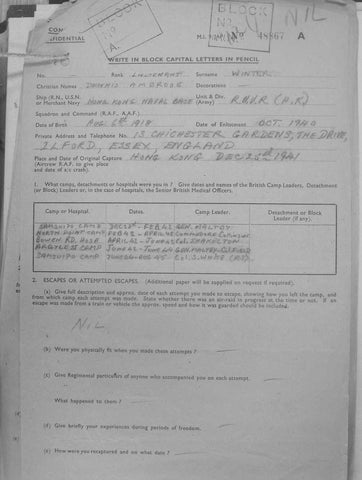 BLOCK
NO
A.
BLOCK
NO
NIL
CON
FIDENTIAL
M.I. 49867 A
WRITE IN BLOCK CAPITAL LETTERS IN PENCIL
No. Rank LIEUTENANT Surname WINTER
Christian Names DENNIS AMBROOK Decorations —
Ship (R.N., U.S.N. or Merchant Navy HONG KONG NAVAL BASE Unit & Div. (Army) R.N.V.R (H.K.)
Squadron and Command (R.A.F., S.A.A.F.)
Date of Birth AUG. 6th 1918 Date of Enlistment OCT. 1940
Private Address and Telephone No. 13 CHICHESTER GARDENS, THE DRIVE,
ILFORD, ESSEX, ENGLAND
Place and Date of Original Capture HONG KONG DEC 26th 1941
(Aircrew R.A.F. to give place
and date of a/c crash).
1. What camps, detachments or hospitals were you in? Give dates and names of the British Camp Leaders, Detachment
(or Block) Leaders or, in the case of hospitals, the Senior British Medical Officers.
Camp or Hospital. Dates. Camp Leader. Detachment or Block Leader (if any).
SAMSUIPO CAMP DEC 28th - FEB 42 GEN. MALTBY
NORTH POINT CAMP FEB 42 - APRIL 42 COMMODORE
BOWEN RD. HOSP. APRIL 42 - JUNE 42 COL. SHACKLTON
ARGYLE ST CAMP JUNE 42 - JUNE 44 GEN. MALTBY
SAMSUIPO CAMP JUNE 44 - AUG 45 COL. S. WHITE
2. ESCAPES OR ATTEMPTED ESCAPES. (Additional paper will be supplied on request if required).
(a) Give full description and approx. date of each attempt you made to escape, showing how you left the camp, and
from which camp each attempt was made. State whether there was an air-raid in progress at the time or not. If an
escape was made from a train or vehicle the approx. speed and how it was guarded should be included.
NIL
(b) Were you physically fit when you made these attempts? —
(c) Give Regimental particulars of anyone who accompanied you on each attempt. —
What happened to them? —
(d) Give briefly your experiences during periods of freedom. —
(e) How were you recaptured and on what date? —